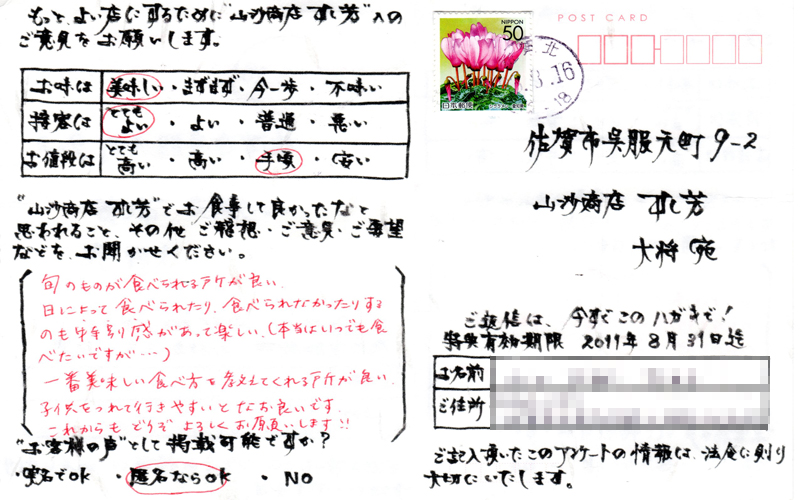 もっと、よい店にするために"山沙商店 すし芳"への
ご意見をお願いします。
お味は 美味しい・まずまず・今一歩・不味い
接客は とてもよい・よい・普通・悪い
お値段は とても高い・高い・手頃・安い
"山沙商店 すし芳"でお食事して良かったなと
思われること、その他ご感想・ご意見・ご要望
などを、お聞かせください。
旬のものが食べられる所が良い.
日によって食べられたり、食べられなかったりする
のも特別感があって楽しい.(本当はいつでも食
べたいですが…)
一番美味しい食べ方を教えてくれる所が良い.
子供をつれて行きやすいとなお良いです.
これからも どうぞ よろしくお願いします!!
"お客様の声"として掲載可能ですか?
・実名でOK ・匿名ならOK ・NO
POST CARD
NIPPON
50
日本郵便
北
.8.16
-18
佐賀市呉服元町9-2
山沙商店 すし芳
大将 宛
ご返信は、今すぐこのハガキで!
特典有効期限 2011年8月31日迄
お名前
ご住所
ご記入頂いたこのアンケートの情報は、法令に則り
大切にいたします。